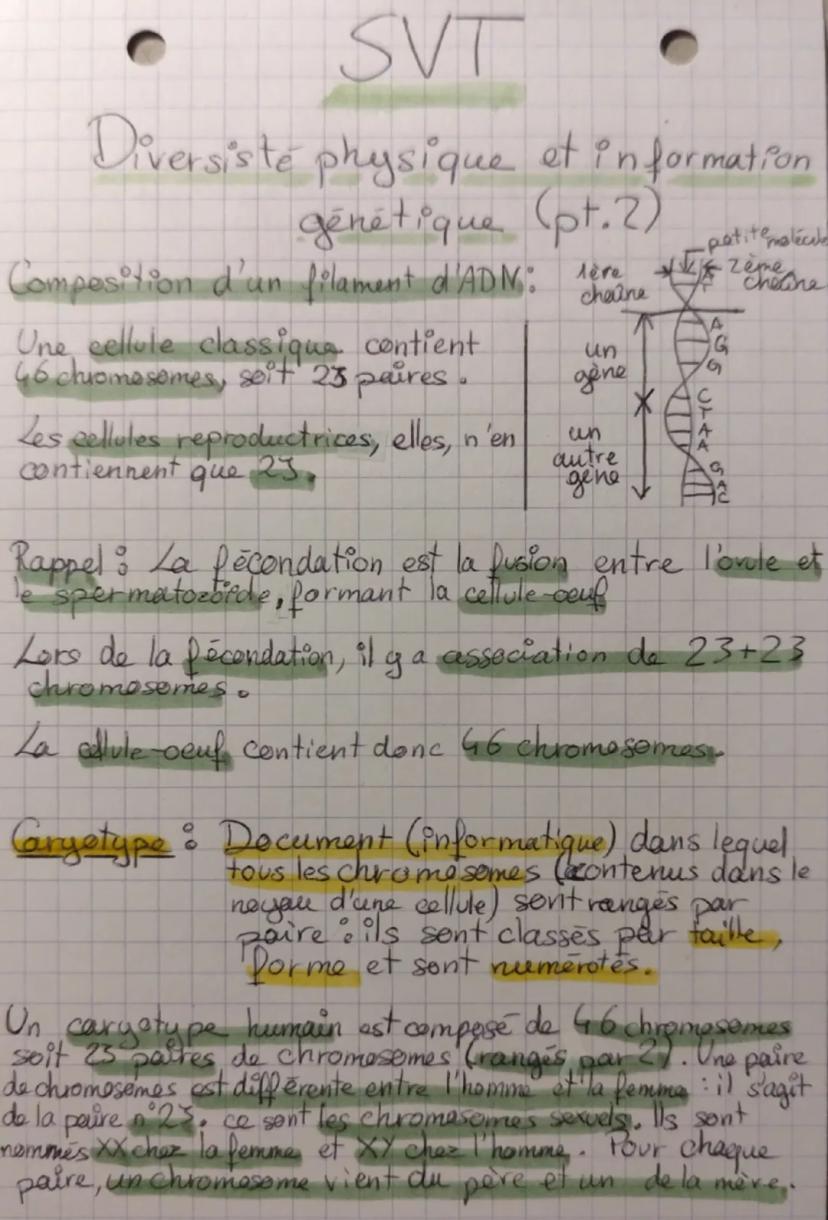 SVT
Diversisté physique et information
génétique (pt.2)
Composition d'un filament d'ADN:
petite molécule
1ère
chaîne
2ème
chaîne
Une cellule classique contient
46 chromosomes, soit 23 paires.
Les cellules reproductrices, elles, n'en
contiennent que 23.
un
gène
un
autre
gène
A
G
G
C
T
A
A
G
A
C
Rappel : La fécondation est la fusion entre l'ovule et
le spermatozoïde, formant la cellule-oeuf
Lors de la fécondation, il y a association de 23+23
chromosomes.
La cellule-oeuf contient donc 46 chromosomes.
Caryotype : Document (informatique) dans lequel
tous les chromosomes (contenus dans le
noyau d'une cellule) sont rangés par
paire : ils sont classés par taille,
forme et sont numérotés.
Un caryotype humain est composé de 46 chromosomes
soit 23 paires de chromosomes (rangés par 2). Une paire
de chromosomes est différente entre l'homme et la femme : il s'agit
de la paire n°23. ce sont les chromosomes sexuels. Ils sont
nommés XX chez la femme et XY chez l'homme. Pour chaque
paire, un chromosome vient du père et un de la mère.